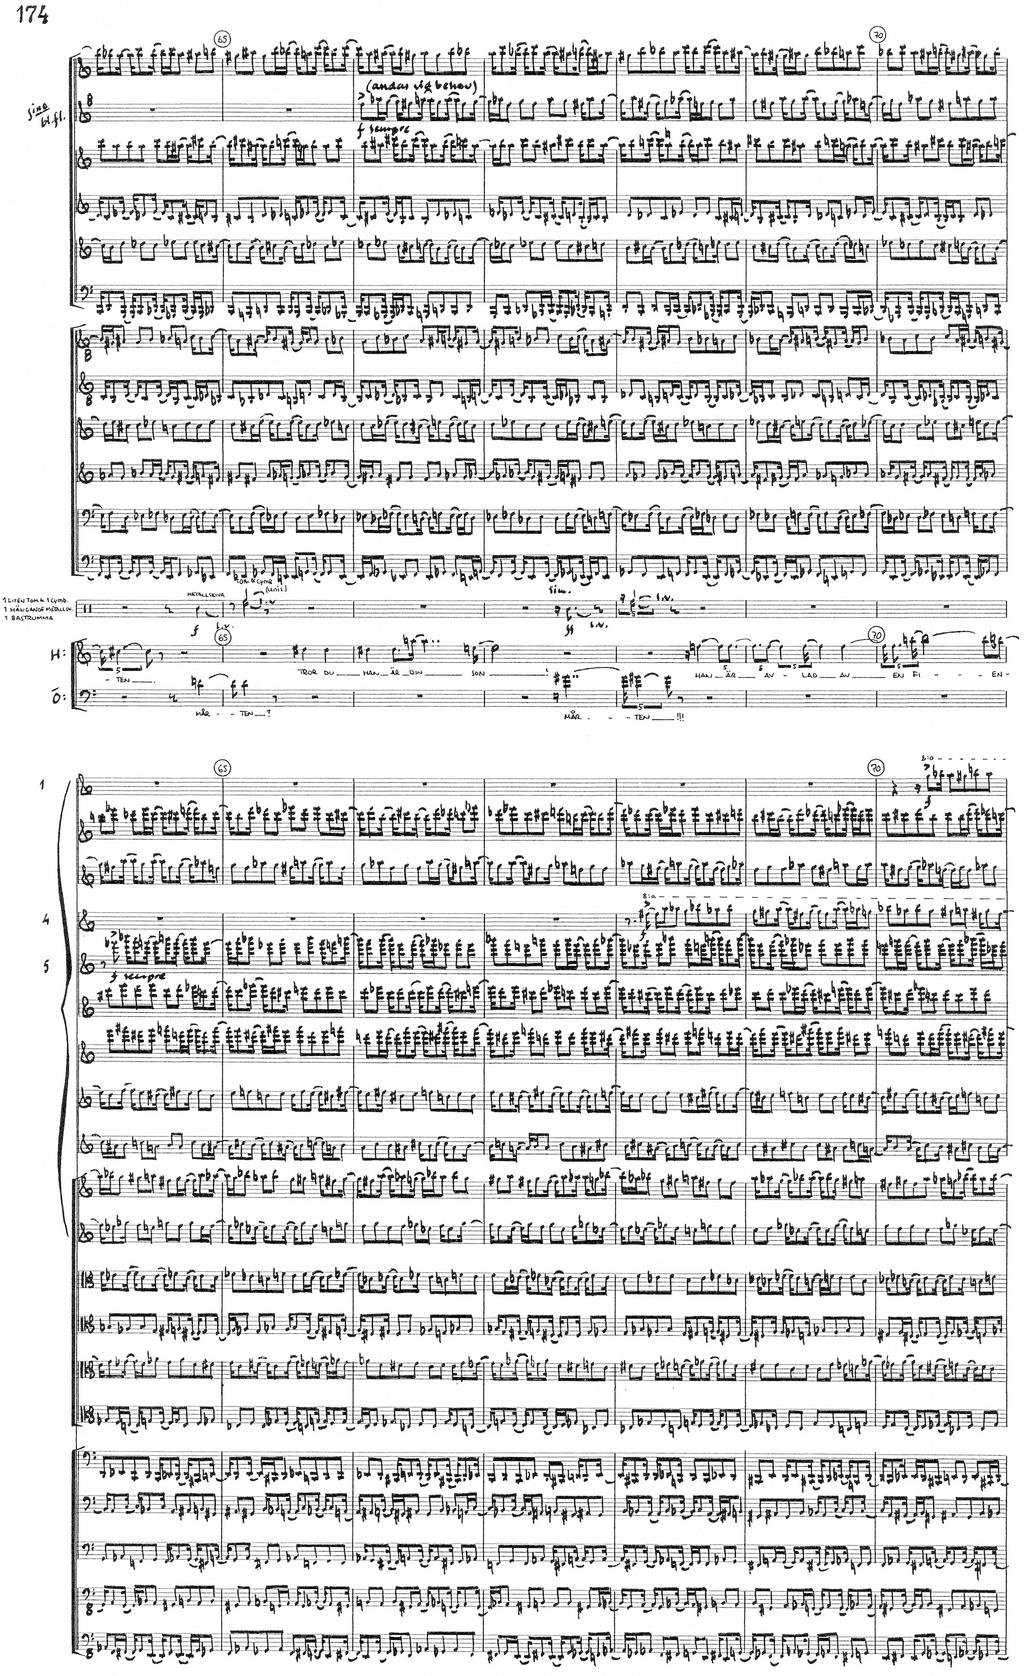 174
65
70
(andas vid behov)
f sempre
TOM & CYMB
(UNIS)
1 LITEN TOM & 1 CYMB.
1 HÄNGANDE METALLSK.
1 BASTRUMMA
METALLSKIVA
f
l.v.
sim.
ff
l.v.
l.v.
65
70
H:
5
5
6
5
5
- TEN
TROR DU HAN ÄR DIN SON !
HAN ÄR AV - LAD AV EN FI - EN-
Ö:
5
MÅR - - TEN ?
MÅR - - - TEN !!!
65
70
8va
1
f
4
8va
f
5
f sempre